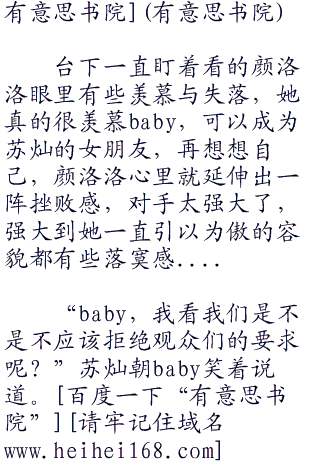 有意思书院](有意思书院)
台下一直盯着看的颜洛
洛眼里有些羡慕与失落，她
真的很羡慕baby，可以成为
苏灿的女朋友，再想想自
己，颜洛洛心里就延伸出一
阵挫败感，对手太强大了，
强大到她一直引以为傲的容
貌都有些落寞感....
“baby，我看我们是不
是不应该拒绝观众们的要求
呢？”苏灿朝baby笑着说
道。[百度一下“有意思书
院”][请牢记住域名
www.heihei168.com]